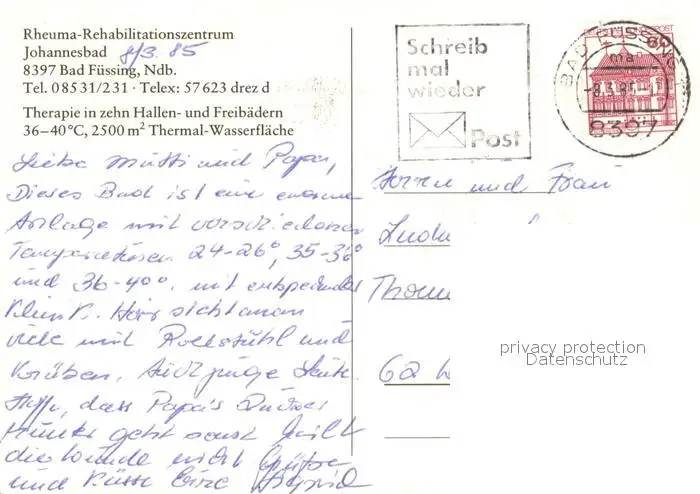 Rheuma-Rehabilitationszentrum
Johannesbad 8/3. 85
8397 Bad Füssing, Ndb.
Tel. 08531/231 · Telex: 57 623 drez d
Therapie in zehn Hallen- und Freibädern
36–40°C, 2500 m² Thermal-Wasserfläche
Schreib
mal
wieder
Post
BAD FÜSSING
ma
8397
60
Liebe Mutti und Papa,
Dieses Bad ist eine enorme
Anlage mit verschiedenen
Temperaturen 24-26°, 35-36°
und 36-40°. mit entsprechender
Klinik. Hier sieht man
viele mit Rollstuhl und
Krücken. Auch junge Leute.
Hoffe, dass Papa's Zucker
runter geht sonst heilt
die Wunde nicht Grüsse
und Küsse Eure Astrid
Herrn und Frau
Ludw
Thom
62 W
privacy protection
Datenschutz